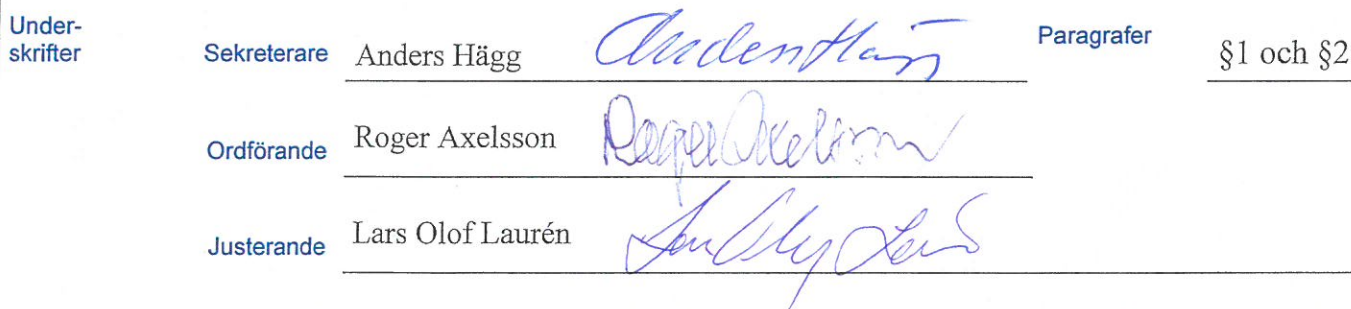 Under-
skrifter
Sekreterare Anders Hägg Anders Hägg Paragrafer §1 och §2
Ordförande Roger Axelsson Roger Axelsson
Justerande Lars Olof Laurén